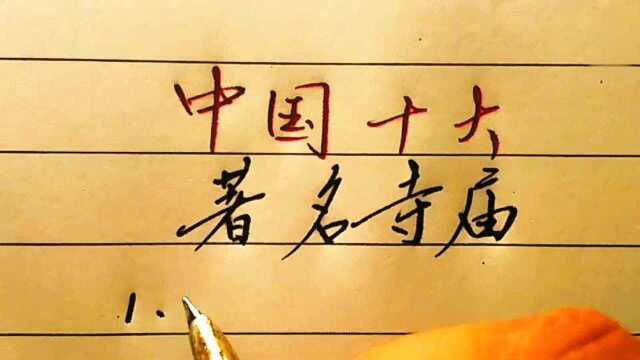 中国十大
著名寺庙
1.